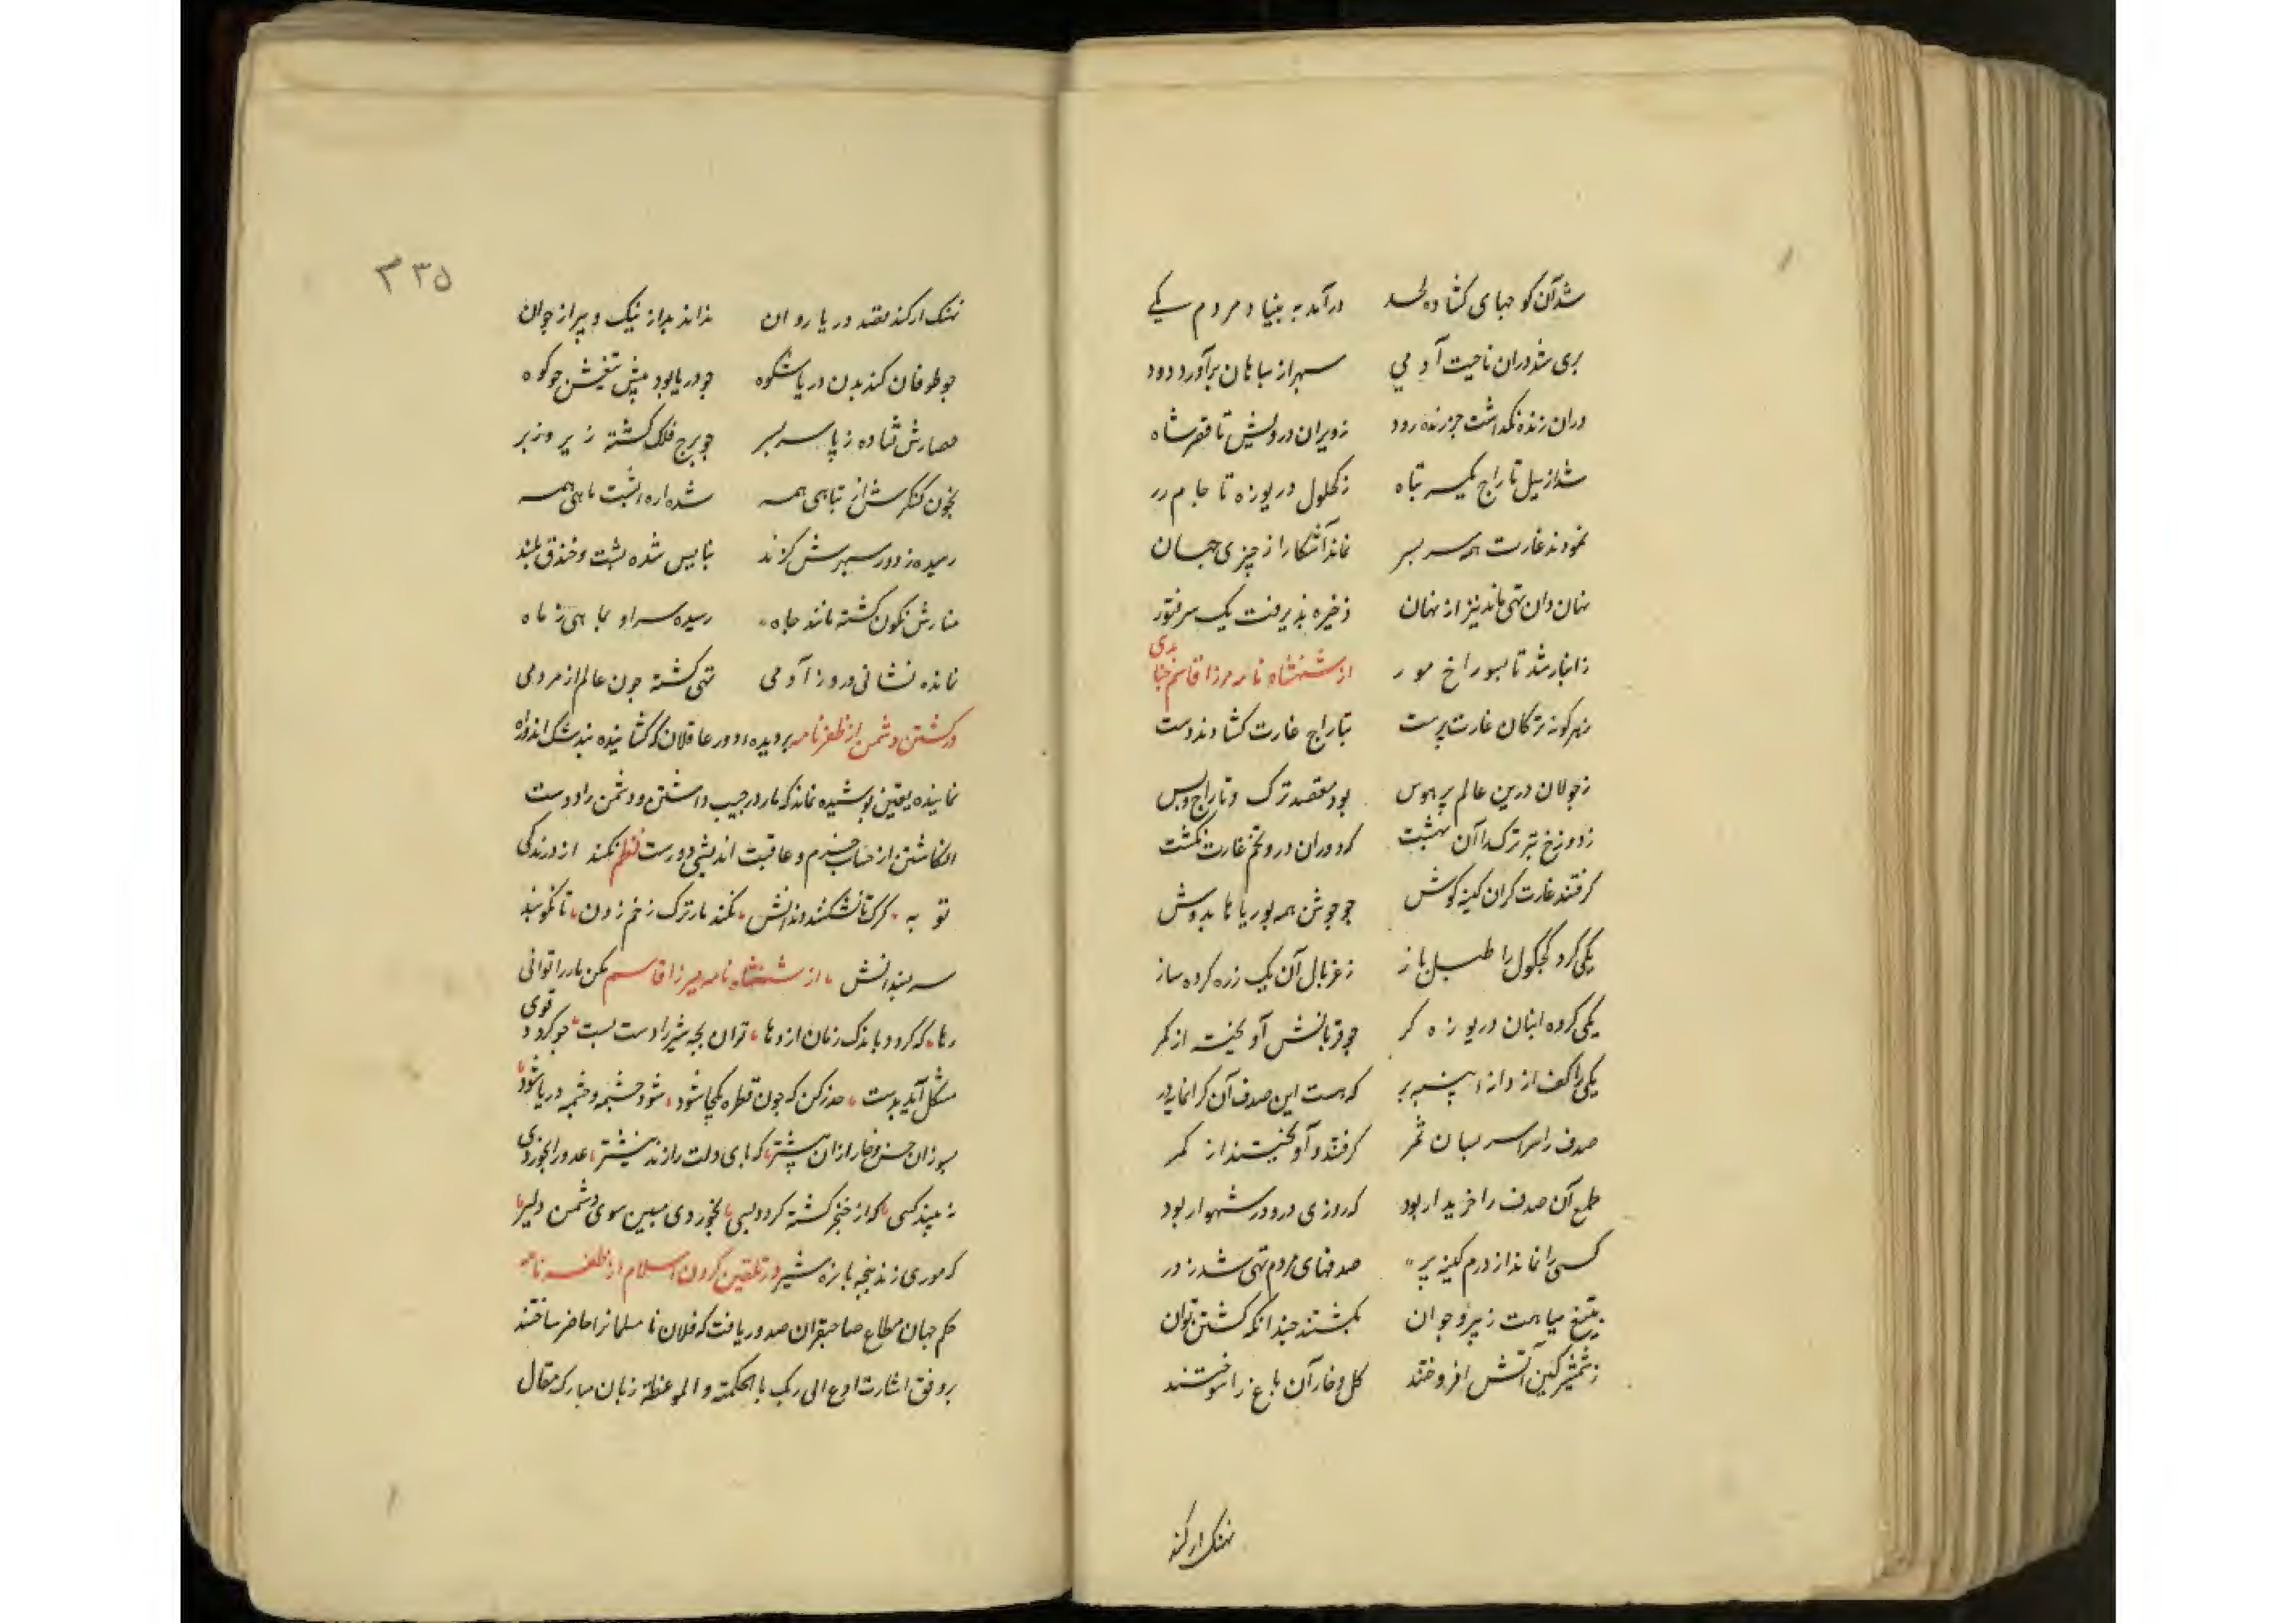 شد آن کوچهای کشاده لحد درآمد به بنیاد مردم یکی
بری شد دران ناحیت آدمی سپهر از سپاهان برآورد دود
دران زنده نکداشت جز زنده رود ز ویران درویش تا قصر شاه
شد از سیل تاراج یکسر تباه ز کچکول دریوزه تا جام زر
نمودند غارت همه سر بسر نماند آشکارا ز چیزی جهان
نهان دان تهی ماند نیز از نهان ذخیره پذیرفت یک سر فتور
ز انبار شد تا بسوراخ مور از شهنشاه نامه مرزا قاسم جنابدی
بهر کونه ترکان غارت پرست بتاراج غارت کشادند دست
ز جولان درین عالم پر هوس بود مقصد ترک و تاراج و بس
ز دوزخ بتر ترک را آن بهشت که دوران درو تخم غارت نکشت
کرفتند غارت کران کینه کوش چو جوشن همه بوریاها بدوش
یکی کرد کچکول را طبل باز ز غربال آن یک زره کرده ساز
یکی کرده انبان دریوزه کر چو قربانش آویخت از کمر
یکی را کف از دانه پنبه پر که هست این صدف آن کرانمایه در
صدف را سراسر بسان ثمر کرفتند و آویختند از کمر
طمع آن صدف را خریدار بود که روزی درو در شهوار بود
کسی را نماند از درم کیسه پر صدفهای مردم تهی شد ز در
بتیغ سیاست ز پیر و جوان بکشتند چندانکه کشتن توان
ز شمشیر کین آتش افروختند کل و خار آن باغ را سوختند
نهنک ار کند
۳۳۵
نهنک ار کند قصد دریا روان نداند بد از نیک و پیر از جوان
چو طوفان کند بدن دریا شکوه چو دریا بود پیش تیغش چو کوه
حصارش فتاده ز پا سر بسر چو برج فلک کشته زیر و زبر
بخون کنکرش از تباهی همه شده اره پشت ماهی همه
رسیده ز دور سپهرش کزند بنا پس شده پشت و خندق بلند
منارش نکون کشته مانند چاه رسیده سر او بماهی ز ماه
نمانده نشانی درو ز آدمی تهی کشته چون عالم از مردمی
در کشتن دشمن از ظفرنامه بر دیده دور عاقلان که کشاینده
نماینده یقین پوشیده نماند که مار در جیب داشتن و دشمن را دوست
انکاشتن از حساب حزم و عاقبت اندیشی دورست نظم نکند از درندکی
توبه کرک تا نشکنند دندانش نکند مار ترک زخم زدن تا نکوبند
سر بسندانش از شهنشاه نامه میرزا قاسم مکن مار را توانی
رها که کردد باندک زمان اژدها توان بچه شیر را دست بست چو کردد قوی
مشکل آید بدست حذر کن که چون قطره یکجا شود شود چشمه و چشمه دریا شود
بسوزان خس و خار از ان پیشتر که پای دولت را زند نیشتر عدو را بخوردی
نبیند کسی که از خنجر کشته کردد بسی بخوردی مبین سوی دشمن دلیر
که موری زند پنجه با نره شیر در تلقین کردن اسلام از ظفر نامه
حکم جهان مطاع صاحبقران صدور یافت که فلان نا مسلمانرا حاضر ساختند
بر وفق اشارت ادع الی ربک بالحکمة و الموعظة زبان مبارک مقال